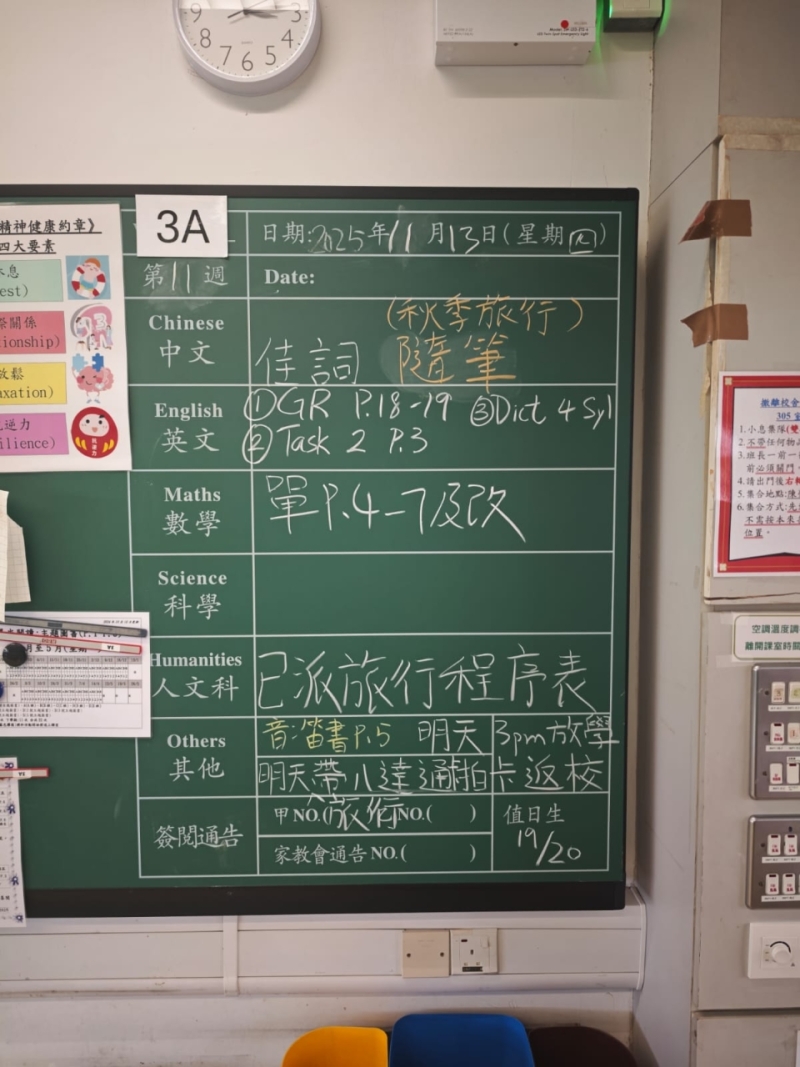 9 3
8 4
7 6 5
精神健康約章》
四大要素
est)
際關係
ionship)
放鬆
axation)
逆力
ilience)
3A
日期:2025年11月13日(星期四)
第11週
Date:
Chinese
中文
(秋季旅行)
佳詞 隨筆
English
英文
①GR P.18-19 ③Dict 4 Syl
②Task 2 P.3
Maths
數學
單P.4-7及改
Science
科學
Humanities
人文科
已派旅行程序表
Others
其他
音:笛書P.5 明天 3pm放學
明天帶八達通拍卡返校
簽閱通告
甲NO.(旅行NO.( )
家教會通告NO.( )
值日生
19/20
撤離校舍
305 室
1.小息集隊(雙
2.不帶任何物品
3.班長一前一
前必須關門,
4.請出門後右轉
5.集合地點:陳
6.集合方式:先
不需按本來
位置。
空調溫度調
離開課室時關